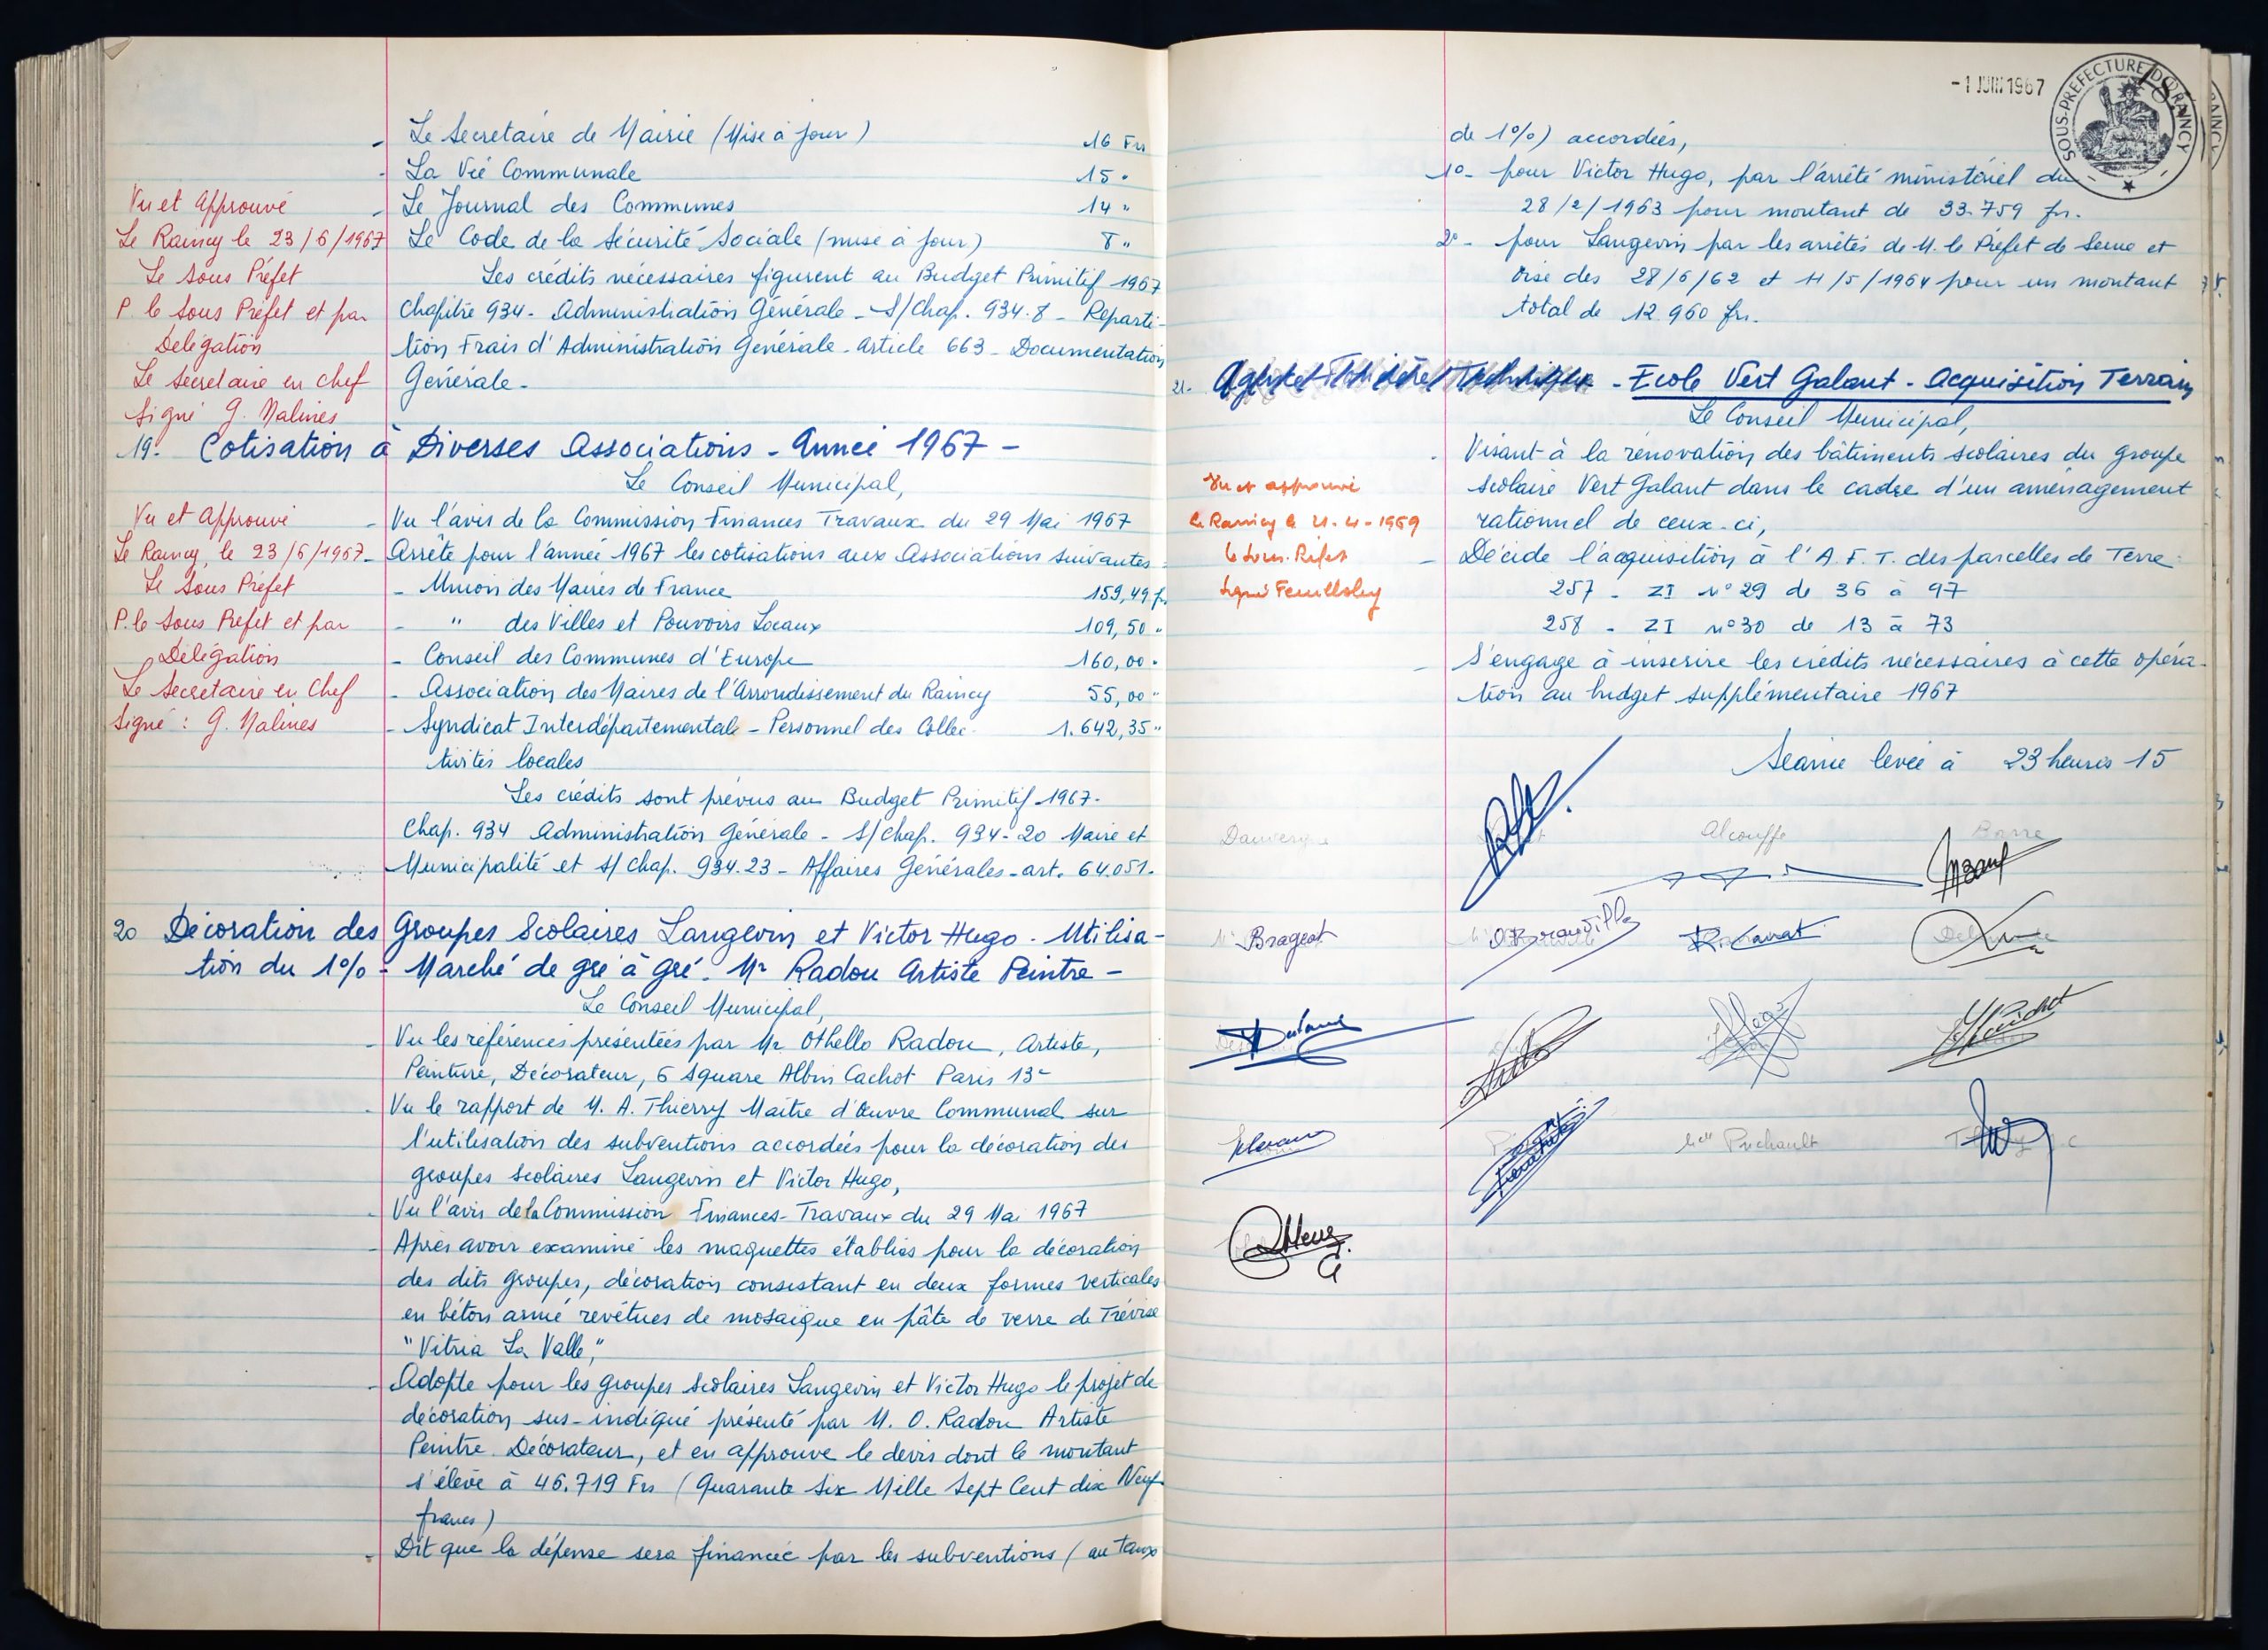 - Le Secretaire de Mairie (Mise à jour) 16 Frs
- La Vie Communale 15 "
- Le Journal des Communes 14 "
Le Code de la Sécurité Sociale (mise à jour) 8 "
Les crédits nécessaires figurent au Budget Primitif 1967
Chapitre 934 - Administration Générale - S/Chap. 934.8 - Reparti-
tion Frais d'Administration Générale - Article 663 - Documentation
Générale -
Vu et Approuvé
Le Raincy le 23/6/1967
Le Sous Préfet
P. le Sous Préfet et par
Délégation
Le Secretaire en chef
Signé G. Malines
19. Cotisation à Diverses Associations - Année 1967 -
Le Conseil Municipal,
- Vu l'avis de la Commission Finances Travaux du 29 Mai 1967
- Arrête pour l'année 1967 les cotisations aux Associations suivantes
- Union des Maires de France 159,49 f
- " des Villes et Pouvoirs Locaux 109,50 "
- Conseil des Communes d'Europe 160,00 "
- Association des Maires de l'Arrondissement du Raincy 55,00 "
- Syndicat Interdépartemental - Personnel des Collec- 1.642,35 "
tivités locales
Les crédits sont prévus au Budget Primitif 1967.
Chap. 934 Administration Générale - S/Chap. 934-20 Maire et
Municipalité et S/Chap. 934.23 - Affaires Générales - art. 64.051.
Vu et Approuvé
Le Raincy, le 23/6/1967
Le Sous Préfet
P. le Sous Préfet et par
Délégation
Le Secretaire en Chef
Signé : G. Malines
20 Décoration des Groupes Scolaires Langevin et Victor Hugo - Utilisa-
tion du 1% - Marché de gré à gré - Mr Radou Artiste Peintre -
Le Conseil Municipal,
- Vu les références présentées par Mr Othello Radou, Artiste,
Peinture, Décorateur, 6 Square Albin Cachot Paris 13e
- Vu le rapport de M. A. Thierry Maître d'Œuvre Communal sur
l'utilisation des subventions accordées pour la décoration des
groupes scolaires Langevin et Victor Hugo,
- Vu l'avis de la Commission Finances-Travaux du 29 Mai 1967
- Après avoir examiné les maquettes établies pour la décoration
des dits groupes, décoration consistant en deux formes verticales
en béton armé revêtues de mosaïque en pâte de verre de Trévise
"Vitria La Valle",
- Adopte pour les groupes scolaires Langevin et Victor Hugo le projet de
décoration sus-indiqué présenté par M. O. Radou Artiste
Peintre Décorateur, et en approuve le devis dont le montant
s'élève à 46.719 Frs (Quarante Six Mille Sept Cent dix Neuf
francs)
- Dit que la dépense sera financée par les subventions (au taux
-1 JUIN 1967
SOUS-PREFECTURE DU RAINCY
de 1%) accordées,
1° - pour Victor Hugo, par l'arrêté ministériel du
28/2/1963 pour montant de 33.759 frs.
2° - pour Langevin par les arrêtés de M. le Préfet de Seine et
Oise des 28/6/62 et 11/5/1964 pour un montant
total de 12.960 frs.
21. - Ecole Vert Galant - Acquisition Terrain
Le Conseil Municipal,
- Visant à la rénovation des bâtiments scolaires du groupe
scolaire Vert Galant dans le cadre d'un aménagement
rationnel de ceux-ci,
- Décide l'acquisition à l'A.F.T. des parcelles de Terre :
257 - ZI n° 29 de 36 a 97
258 - ZI n° 30 de 13 a 73
- S'engage à inscrire les crédits nécessaires à cette opéra-
tion au budget supplémentaire 1967
Vu et approuvé
le Raincy le 21-4-1969
le Sous-Préfet
Séance levée à 23 heures 15
Dauvergne
Alcouffe
Barre
Brageot
Melle Puchault